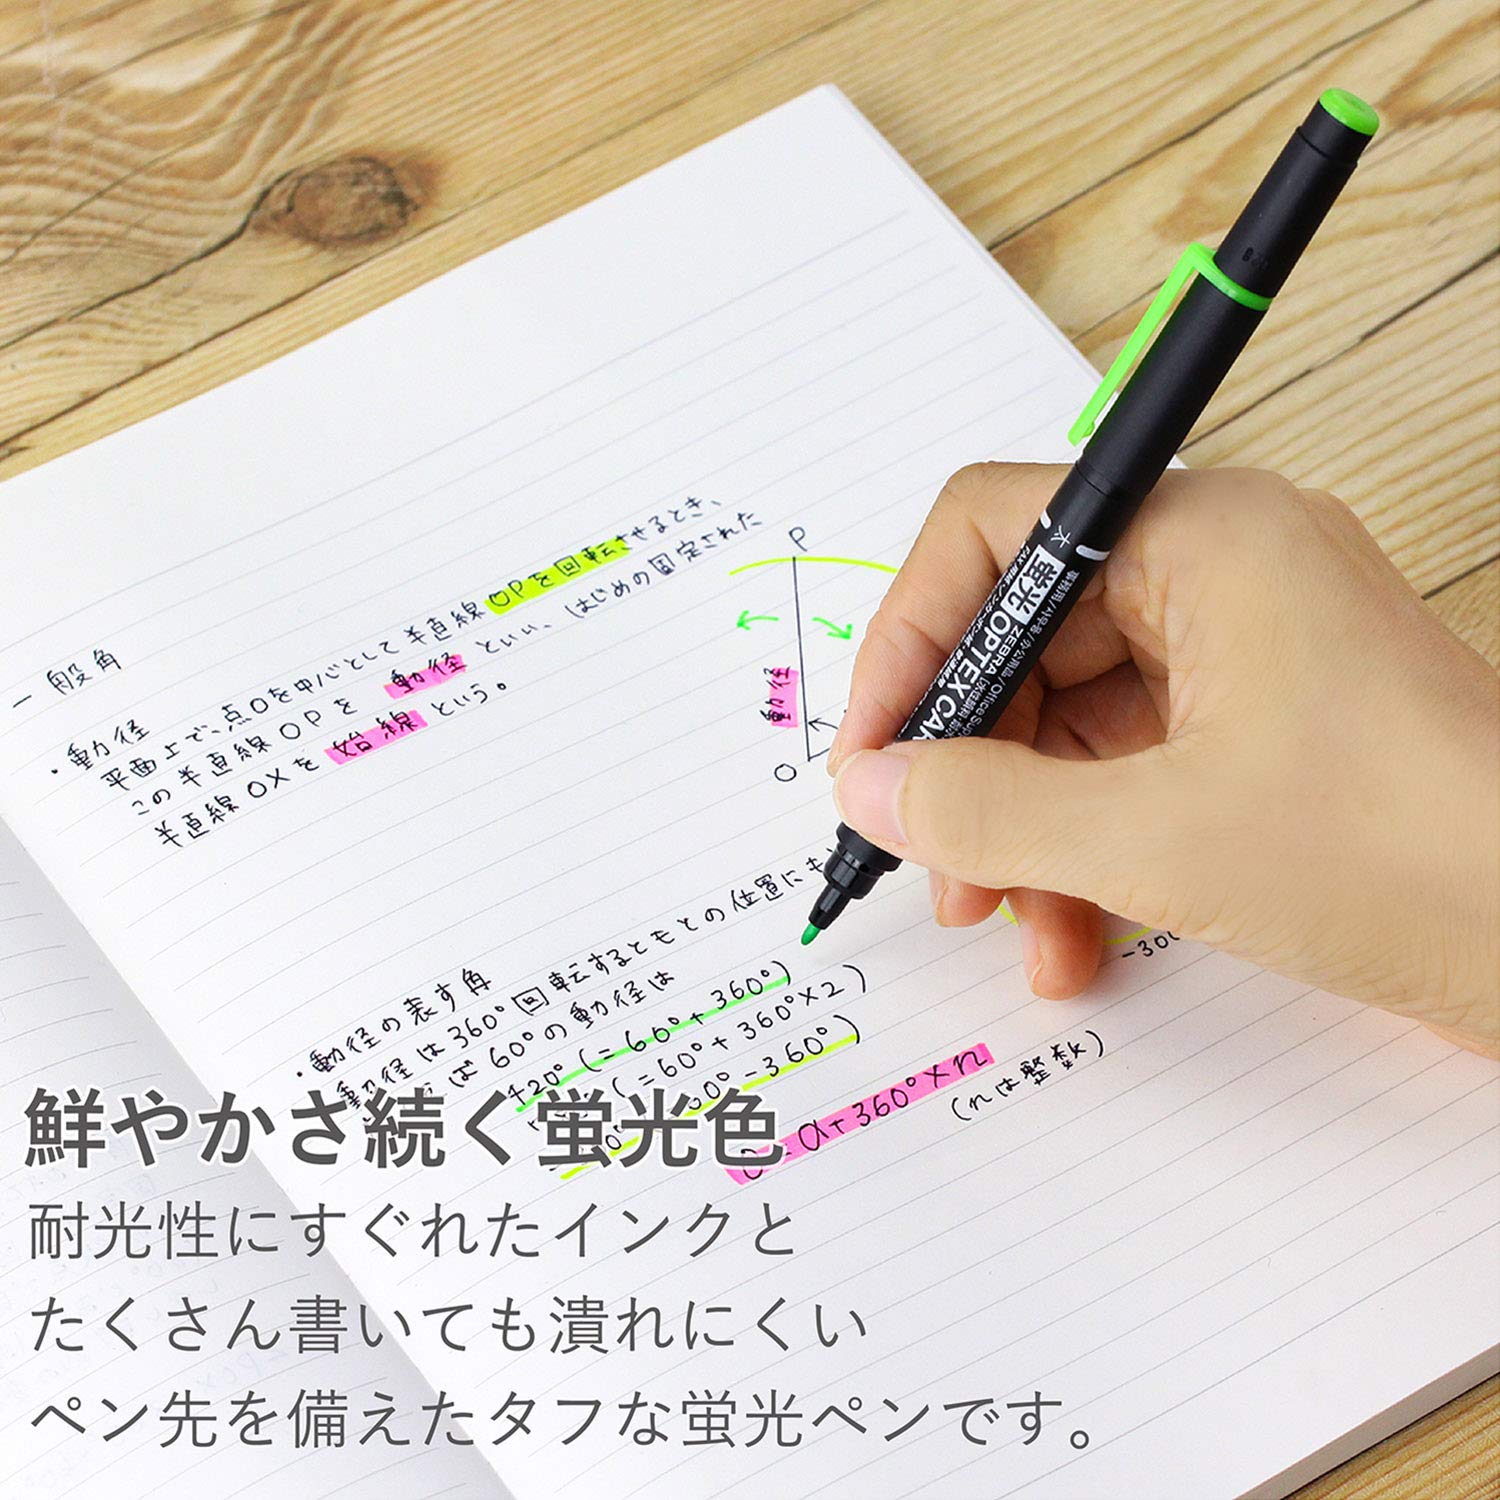 一般角
・動径
平面上で、点Oを中心として半直線OPを回転させるとき、
この半直線OPを動径といい、はじめの固定された
半直線OXを始線という。
P
動径
O
太
蛍光 OPTEX CAR
ZEBRA
事務用/사무용/办公用品/Office Sup
・動径の表す角
動径は360°回転するともとの位置にも
ば60°の動径は
420°(=60°+360°)
(=60°+360°×2)
0°-360°)
-300
=α+360°×n
(nは整数)
鮮やかさ続く蛍光色
耐光性にすぐれたインクと
たくさん書いても潰れにくい
ペン先を備えたタフな蛍光ペンです。